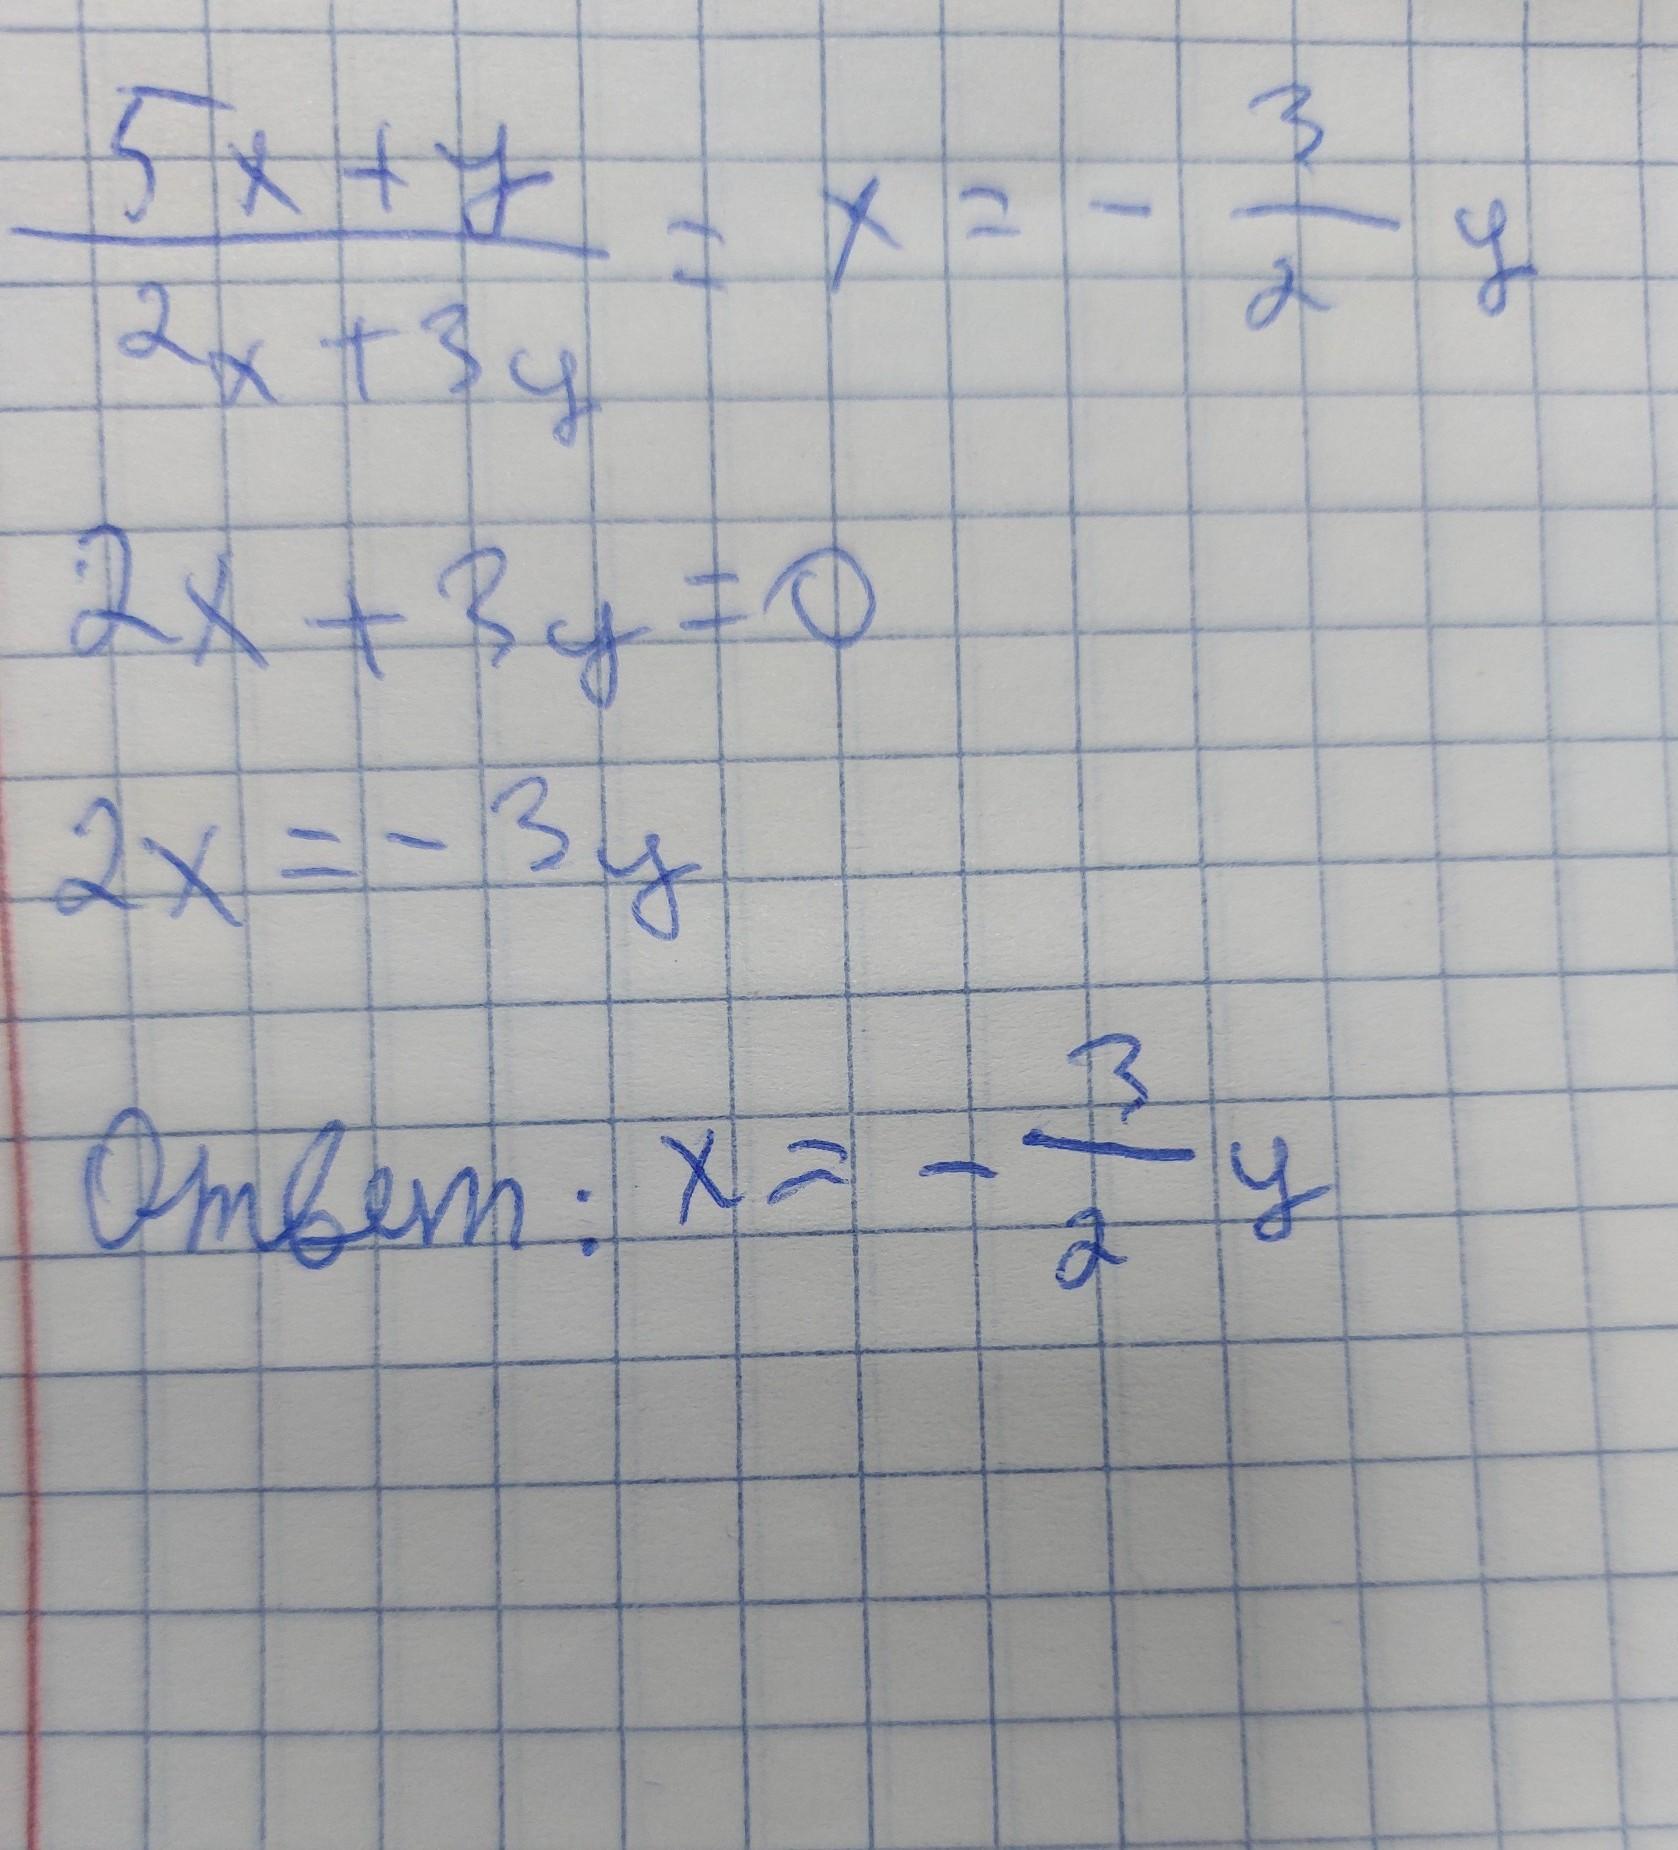 (5x + y)/(2x + 3y) = x = - 3/2 y
2x + 3y = 0
2x = - 3y
Ответ: x = - 3/2 y